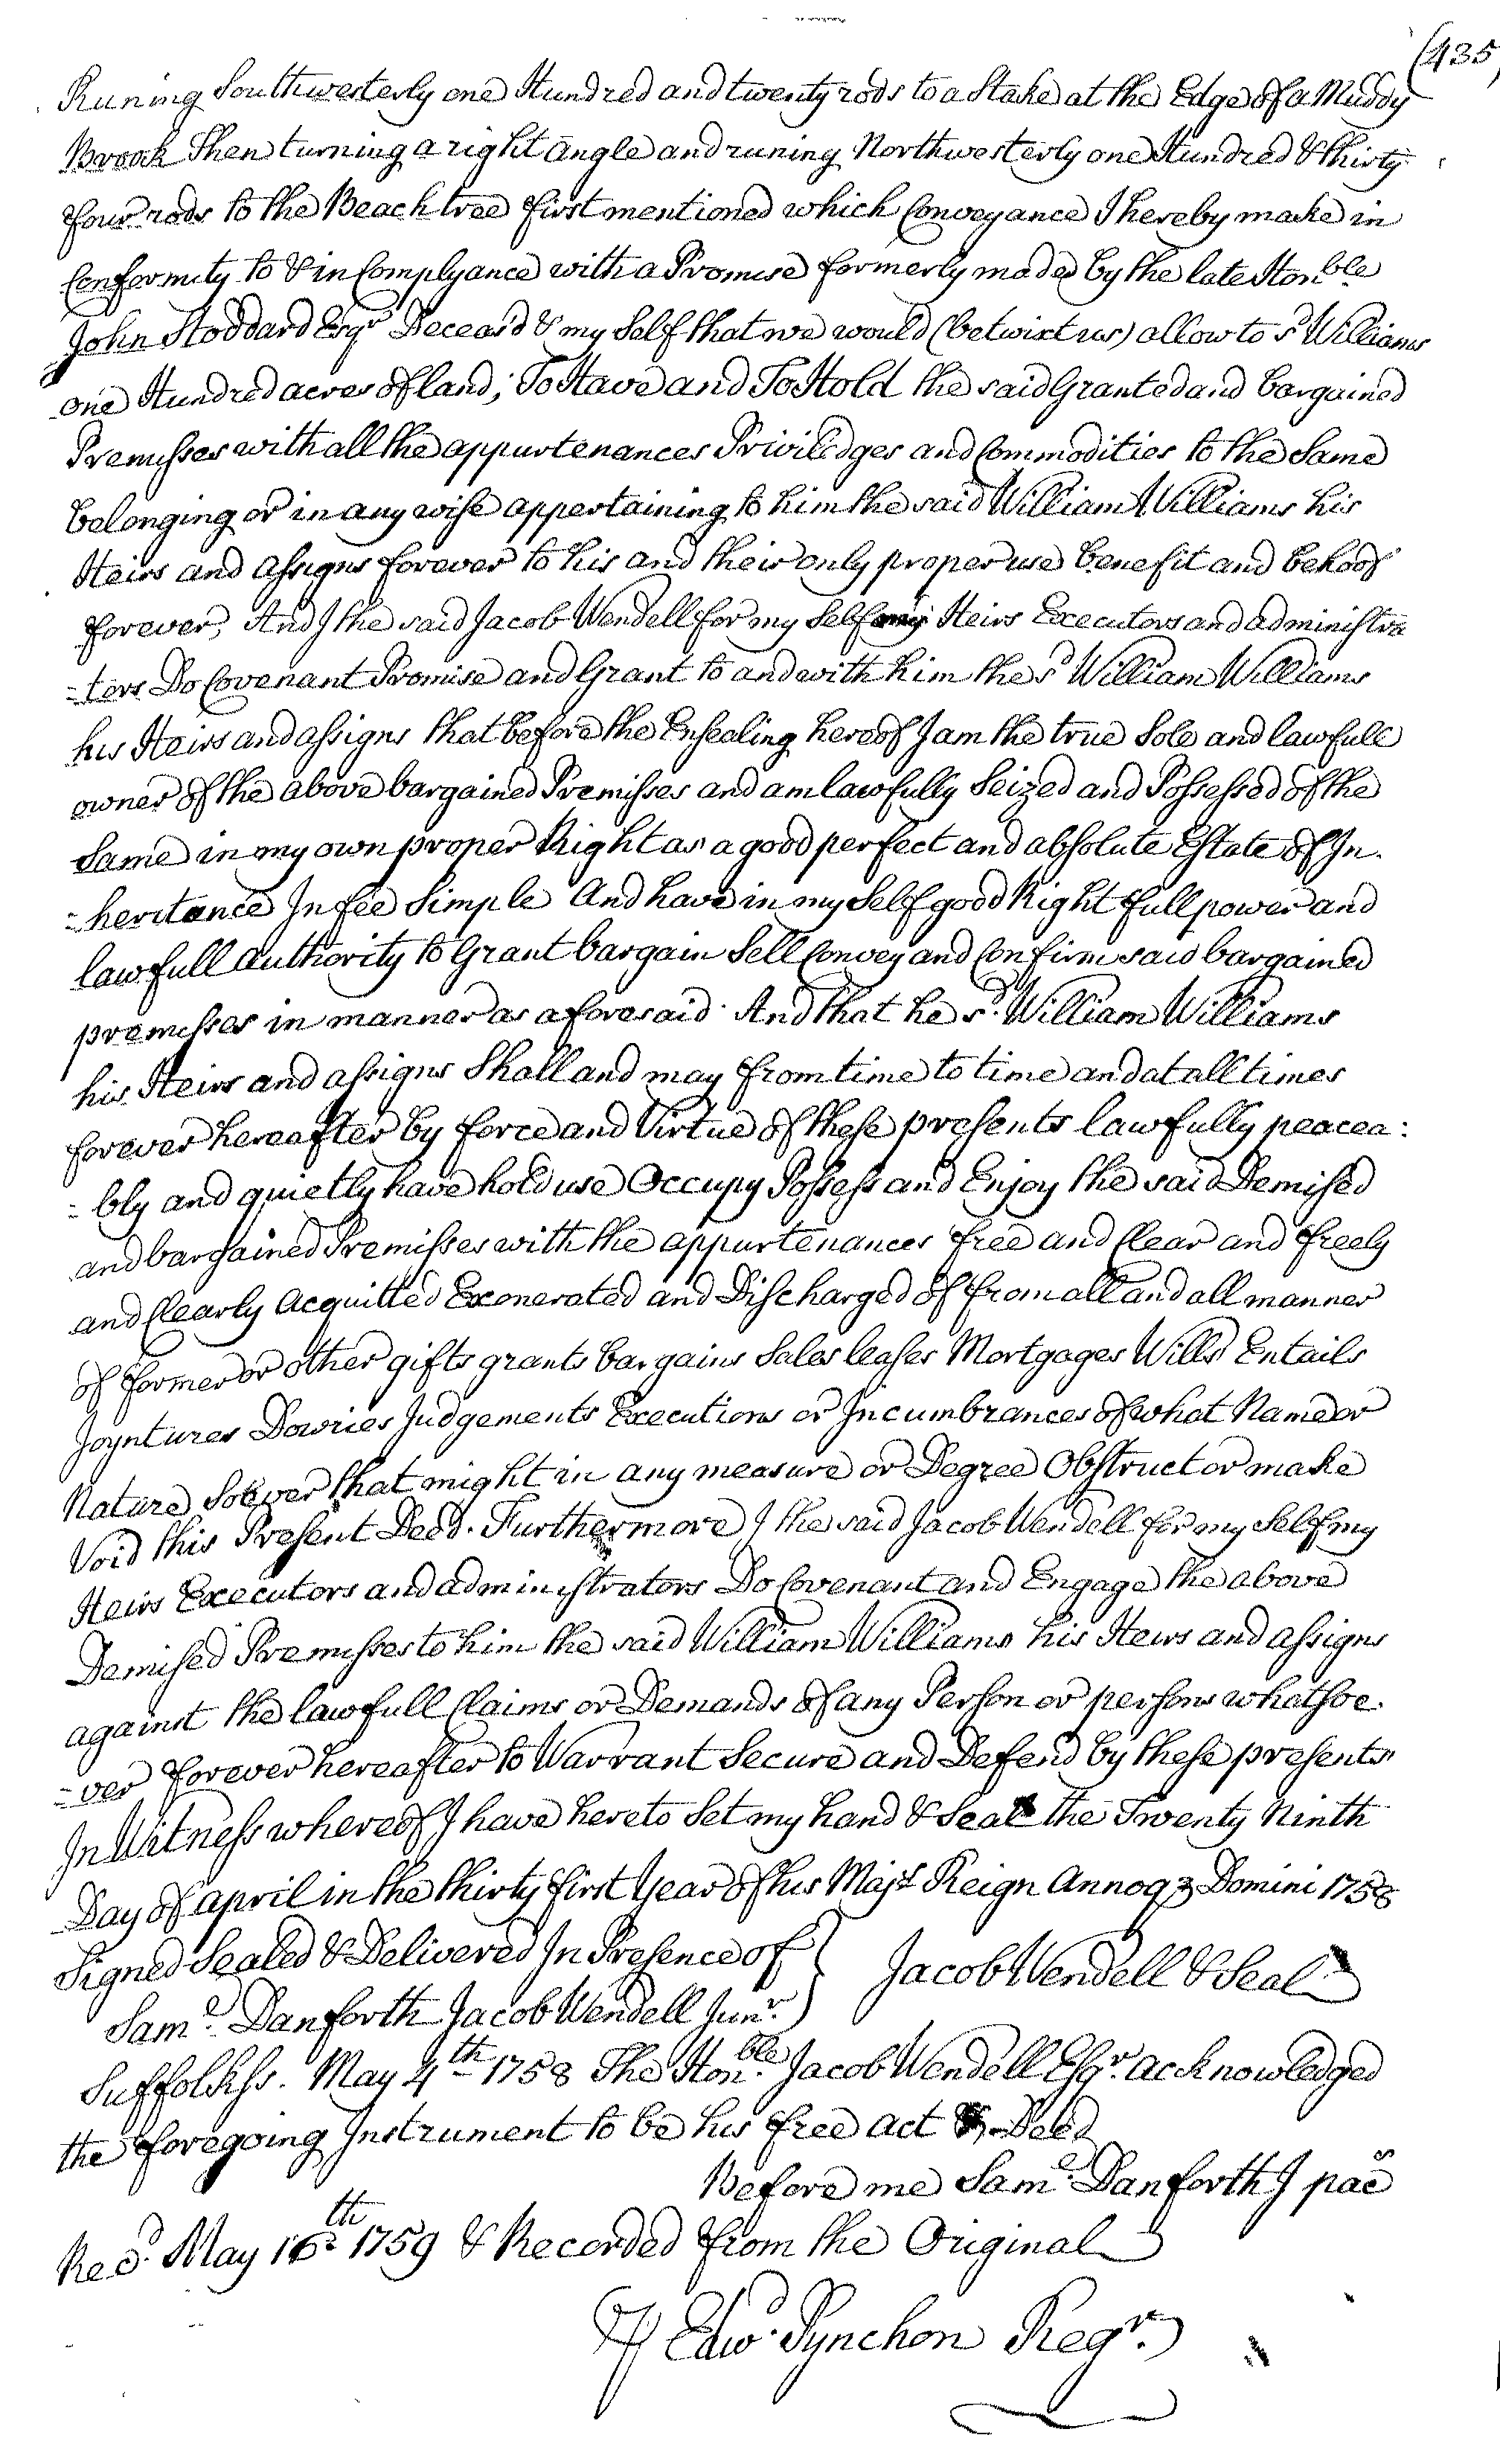 (435)
Runing Southwesterly one Hundred and twenty rods to a Stake at the Edge of a Muddy
Brook Then turning a right angle and runing Northwesterly one Hundred & thirty
four rods to the Beach tree first mentioned which Conveyance I hereby make in
Conformity to & in Complyance with a Promise formerly made by the late Honble
John Stoddard Esqr Deceas'd & my Self that we would (betwixt us) allow to sd Williams
one Hundred acres of land; To Have and To Hold the said Granted and bargained
Premisses with all the appurtenances Priviledges and Commodities to the Same
belonging or in any wise appertaining to him the said William Williams his
Heirs and assigns forever to his and their only proper use benefit and behoof
forever, And I the said Jacob Wendell for my Self my Heirs Executors and administra
-tors Do Covenant Promise and Grant to and with him the sd William Williams
his Heirs and assigns that before the Ensealing hereof I am the true Sole and lawfull
owner of the above bargained Premisses and am lawfully Seized and Possessed of the
Same in my own proper Right as a good perfect and absolute Estate of In-
-heritance In fee Simple And have in my Self good Right full power and
lawfull authority to Grant bargain Sell Convey and Confirm said bargained
premisses in manner as aforesaid. And that he sd. William Williams
his Heirs and assigns Shall and may from time to time and at all times
forever hereafter by force and Virtue of these presents lawfully peacea:
-bly and quietly have hold use Occupy Possess and Enjoy the said Demised
and bargained Premisses with the appurtenances free and Clear and freely
and Clearly acquitted Exonerated and Discharged of from all and all manner
of former or other gifts grants bargains Sales leases Mortgages Wills Entails
Joyntures Dowries Judgements Executions or Incumbrances of what Name or
Nature Soever that might in any measure or Degree Obstruct or make
Void this Present Deed. Furthermore I the said Jacob Wendell for my Self my
Heirs Executors and administrators Do Covenant and Engage the above
Demised Premisses to him the said William Williams his Heirs and assigns
against the lawfull Claims or Demands of any Person or persons whatsoe-
-ver forever hereafter to Warrant Secure and Defend by these presents
In Witness whereof I have hereto Set my hand & Seal the Twenty Ninth
Day of april in the thirty first Year of his Majts Reign Annoq3 Domini 1758
Signed Sealed & Delivered In Presence of } Jacob Wendell & Seal
Saml. Danforth Jacob Wendell Junr.
Suffolk ss. May 4th 1758 The Honble. Jacob Wendell Esqr. acknowledged
the foregoing Instrument to be his free act & Deed
Before me Saml. Danforth J pac
Recd. May 16th 1759 & Recorded from the Original
⅌ Edwd. Pynchon Regr.